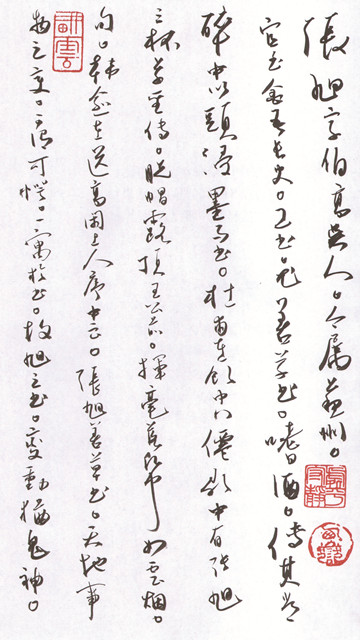 張旭字伯高吳人。今屬蘇州。
官至金吾長史。工書。尤善草書。嗜酒。傳其常
醉中以頭濡墨而書。杜甫在飲中八僊歌中有張旭
三杯草聖傳。脱帽露頂王公前。揮毫落紙如雲煙。
句。韓愈在送高閑上人序中云。張旭善草書。天地事
物之變。可喜可愕。一寓於書。故旭之書。變動猶鬼神。